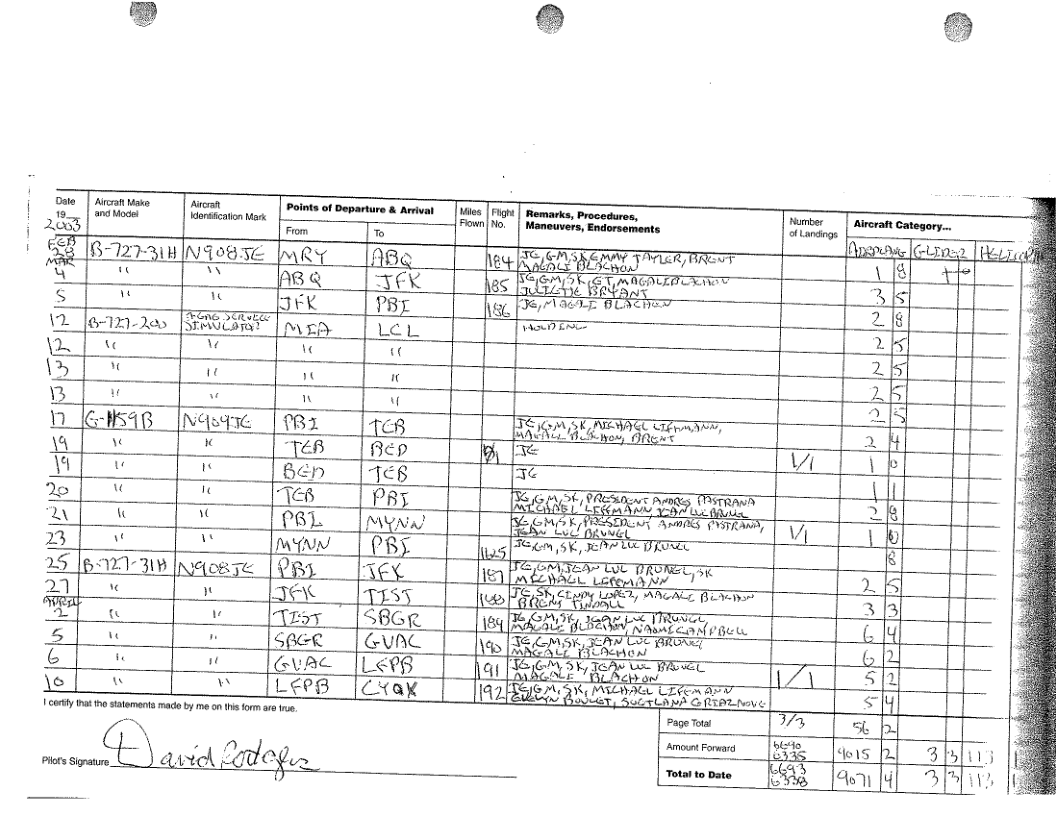 Date Aircraft Make and Model Aircraft Identification Mark Points of Departure & Arrival Miles Flown Flight No. Remarks, Procedures, Maneuvers, Endorsements Number of Landings Aircraft Category...
19 2003 From To AIRPLANE GLIDER
FEB 28 B-727-31H N908JE MRY ABQ 184 JE, GM, SK, EMMY TAYLER, BRENT MAGALI BLACHON 1 8
MAR 4 " " ABQ JFK 185 JE, GM, SK, ET, MAGALI BLACHON JULIETTE BRYANT 3 5
5 " " JFK PBI 186 JE, MAGALI BLACHON 2 8
12 B-727-200 SIMULATOR MIA LCL HOLDING 2 5
12 " " " " 2 5
13 " " " " 2 5
13 " " " " 2 5
17 G-1159B N909JE PBI TEB JE, GM, SK, MICHAEL LIFFMANN, MAGALI BLACHON, BRENT 2 4
19 " " TEB BED JE 1/1 1 0
19 " " BED TEB JE 1 1
20 " " TEB PBI JE, GM, SK, PRESIDENT ANDRES PASTRANA MICHAEL LIFFMANN, JEAN LUC BRUNEL 2 8
21 " " PBI MYNN JE, GM, SK, PRESIDENT ANDRES PASTRANA, JEAN LUC BRUNEL 1/1 1 0
23 " " MYNN PBI JE, GM, SK, JEAN LUC BRUNEL 8
25 B-727-31H N908JE PBI JFK 187 JE, GM, JEAN LUC BRUNEL, SK MICHAEL LIFFMANN 2 5
27 " " JFK TIST 188 JE, SK, CINDY LOPEZ, MAGALI BLACHON BRENT TINDALL 3 3
APRIL 2 " " TIST SBGR 189 JE, GM, SK, JEAN LUC BRUNEL, MAGALI BLACHON NAOMI CAMPBELL 6 4
5 " " SBGR GVAC 190 JE, GM, SK, JEAN LUC BRUNEL MAGALI BLACHON 6 2
6 " " GVAC LFPB 191 JE, GM, SK, JEAN LUC BRUNEL MAGALI BLACHON 1/1 5 2
10 " " LFPB CYQX 192 JE, GM, SK, MICHAEL LIFFMANN EVELYN BOULET, SVETLANA 5 4
I certify that the statements made by me on this form are true.
Page Total 3/3 56 2
Amount Forward 6690 6335 9015 2 3 3 113
Pilot's Signature David Rodgers
Total to Date 6693 6338 9071 4 3 3 113